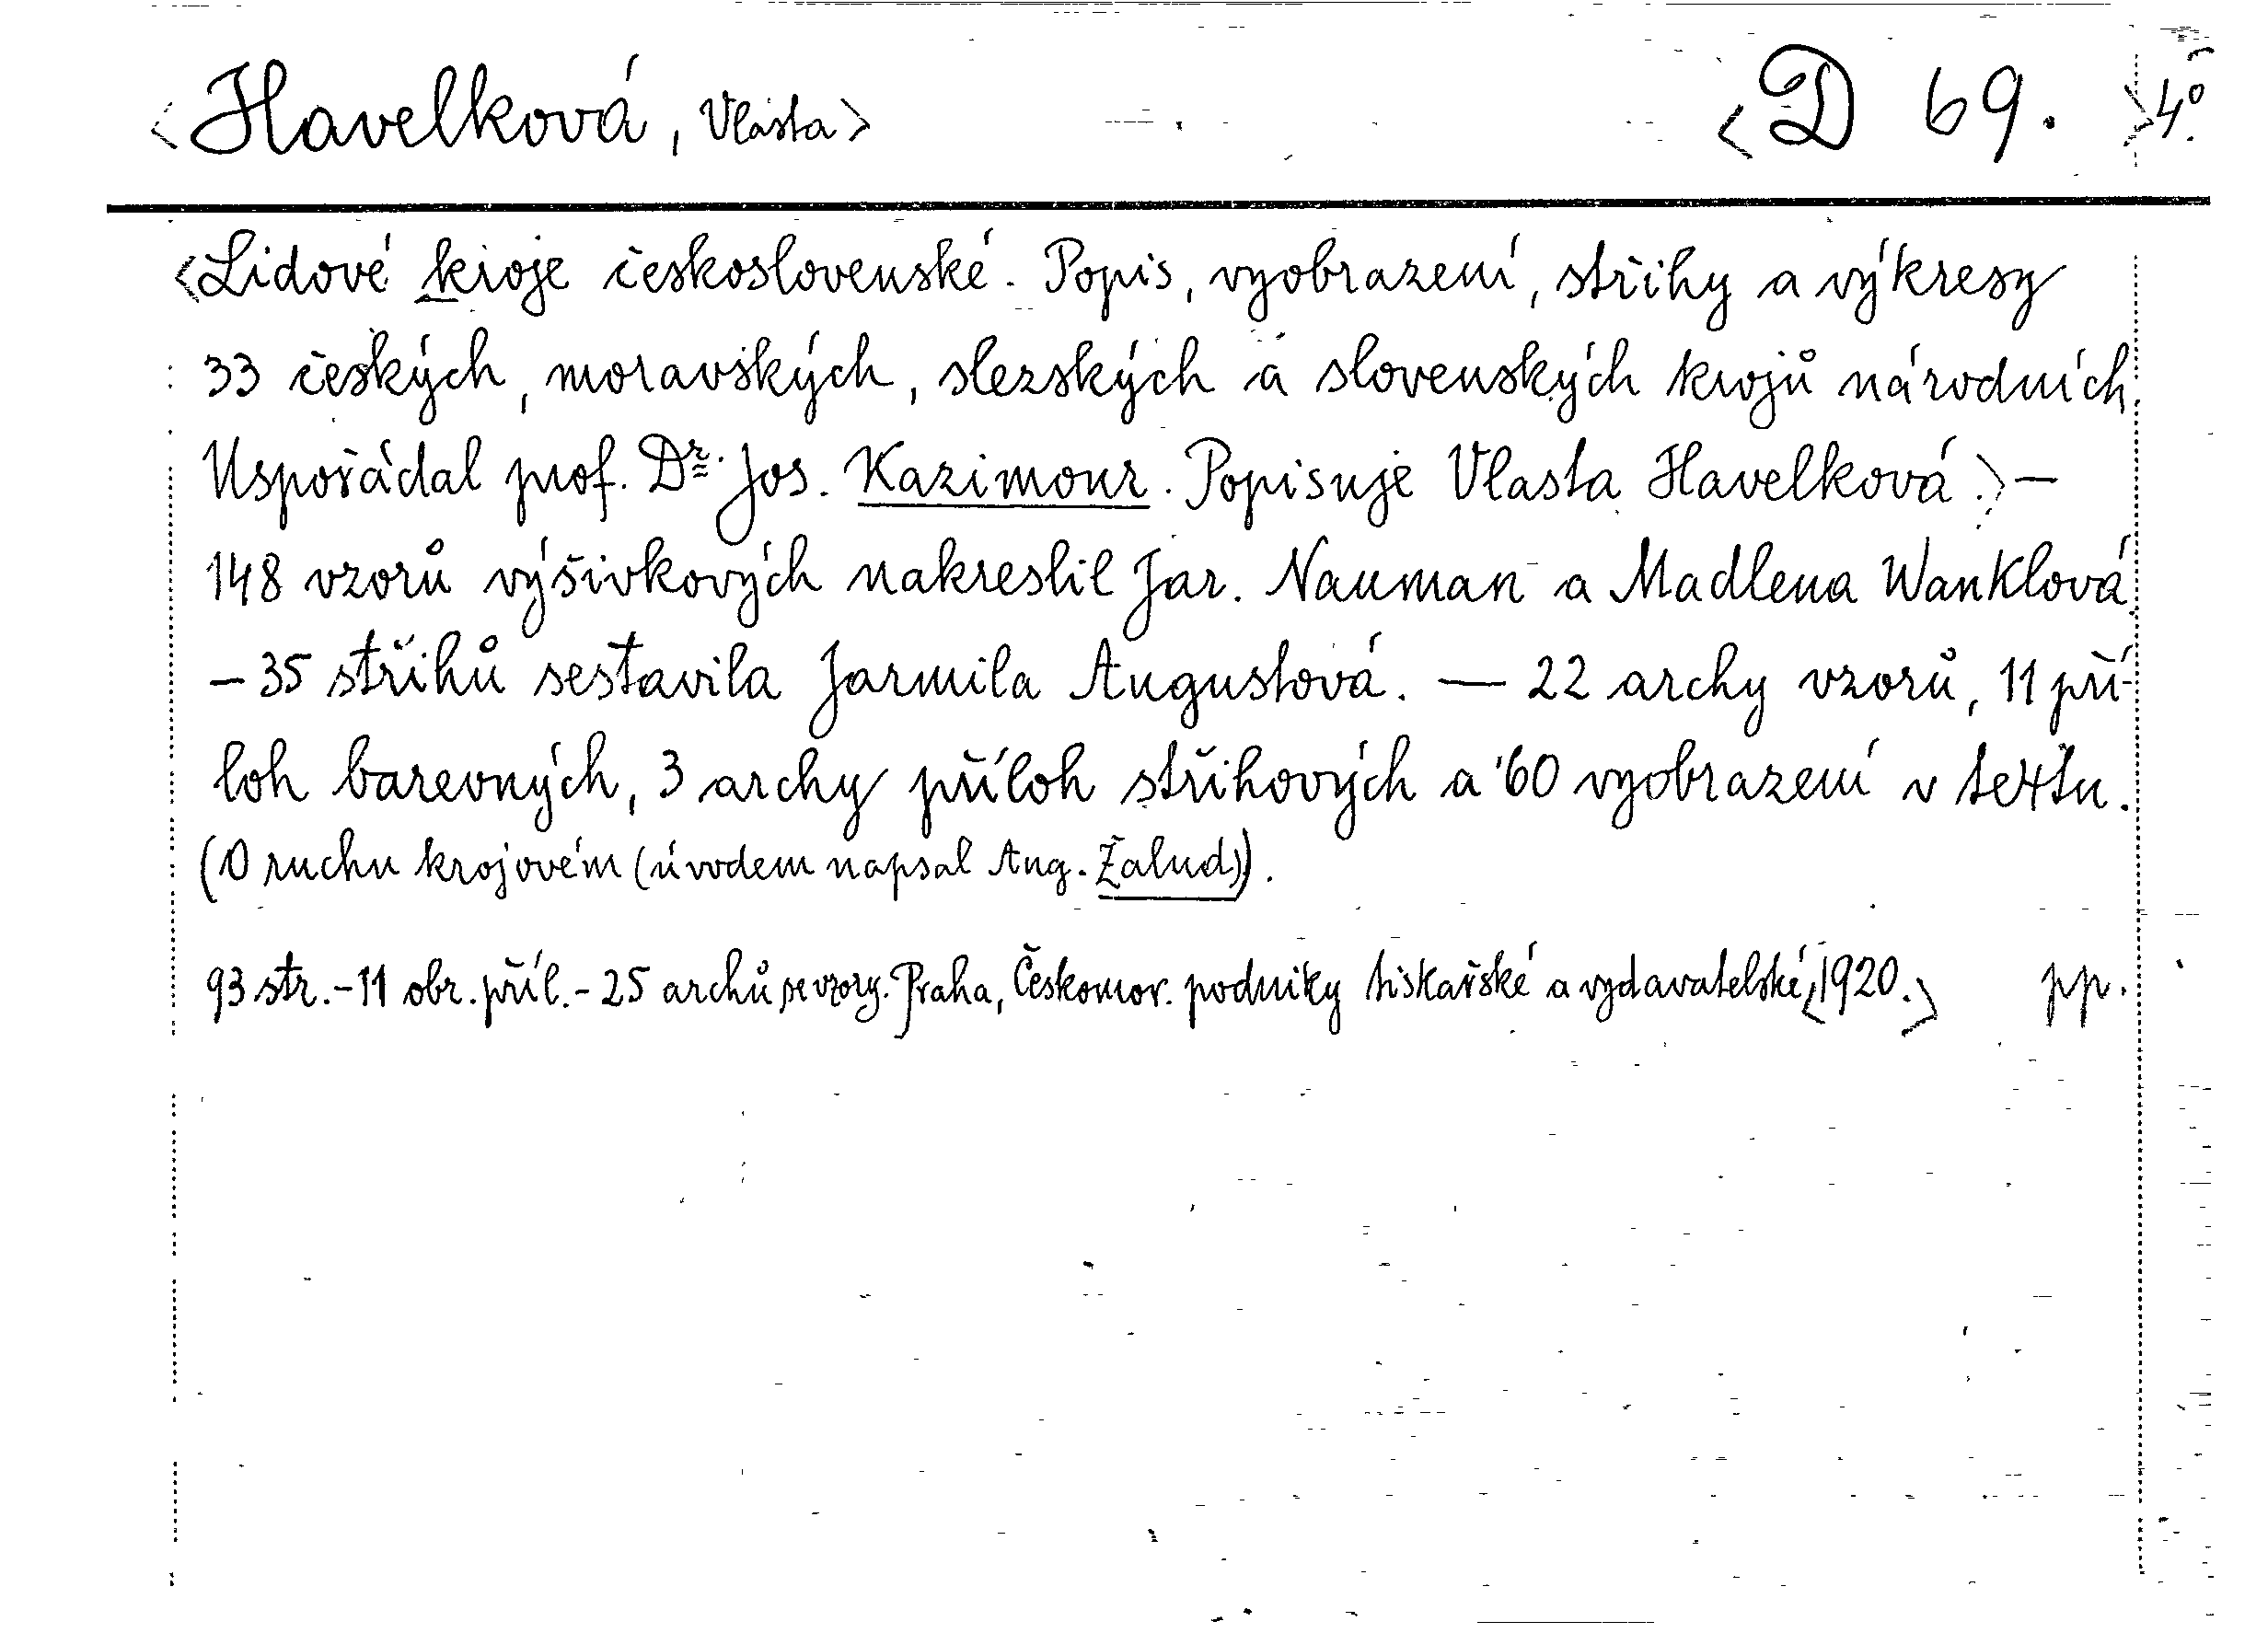 <Havelková, Vlasta> <D 69. >4°.
<Lidové kroje československé. Popis, vyobrazení, střihy a výkresy
33 českých, moravských, slezských a slovenských krojů národních.
Uspořádal prof. Dr. Jos. Kazimour. Popisuje Vlasta Havelková.> —
148 vzorů výšivkových nakreslil Jar. Nauman a Madlena Wanklová.
– 35 střihů sestavila Jarmila Augustová. — 22 archy vzorů, 11 pří-
loh barevných, 3 archy příloh střihových a 60 vyobrazení v textu.
(O ruchu krojovém (úvodem napsal Aug. Žalud)).
93 str. – 11 obr. příl. – 25 archů se vzory. Praha, Českomor. podniky tiskařské a vydavatelské, <1920.> pp.